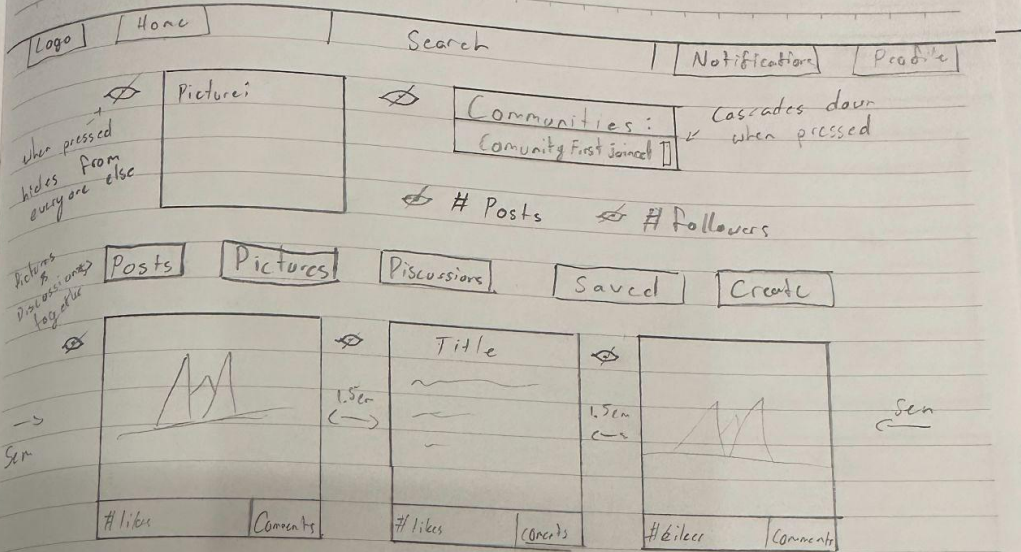 Logo
Home
Search
Notifications
Profile
Picture:
when pressed
hides from
everyone else
Communities:
Comunity First joined
Cascades down
when pressed
# Posts
# Followers
Pictures
&
Discussions
together
Posts
Pictures
Discussions
Saved
Create
Title
1.5cm
1.5cm
5cm
5cm
#likes
Comments
#likes
coments
#likes
Comments